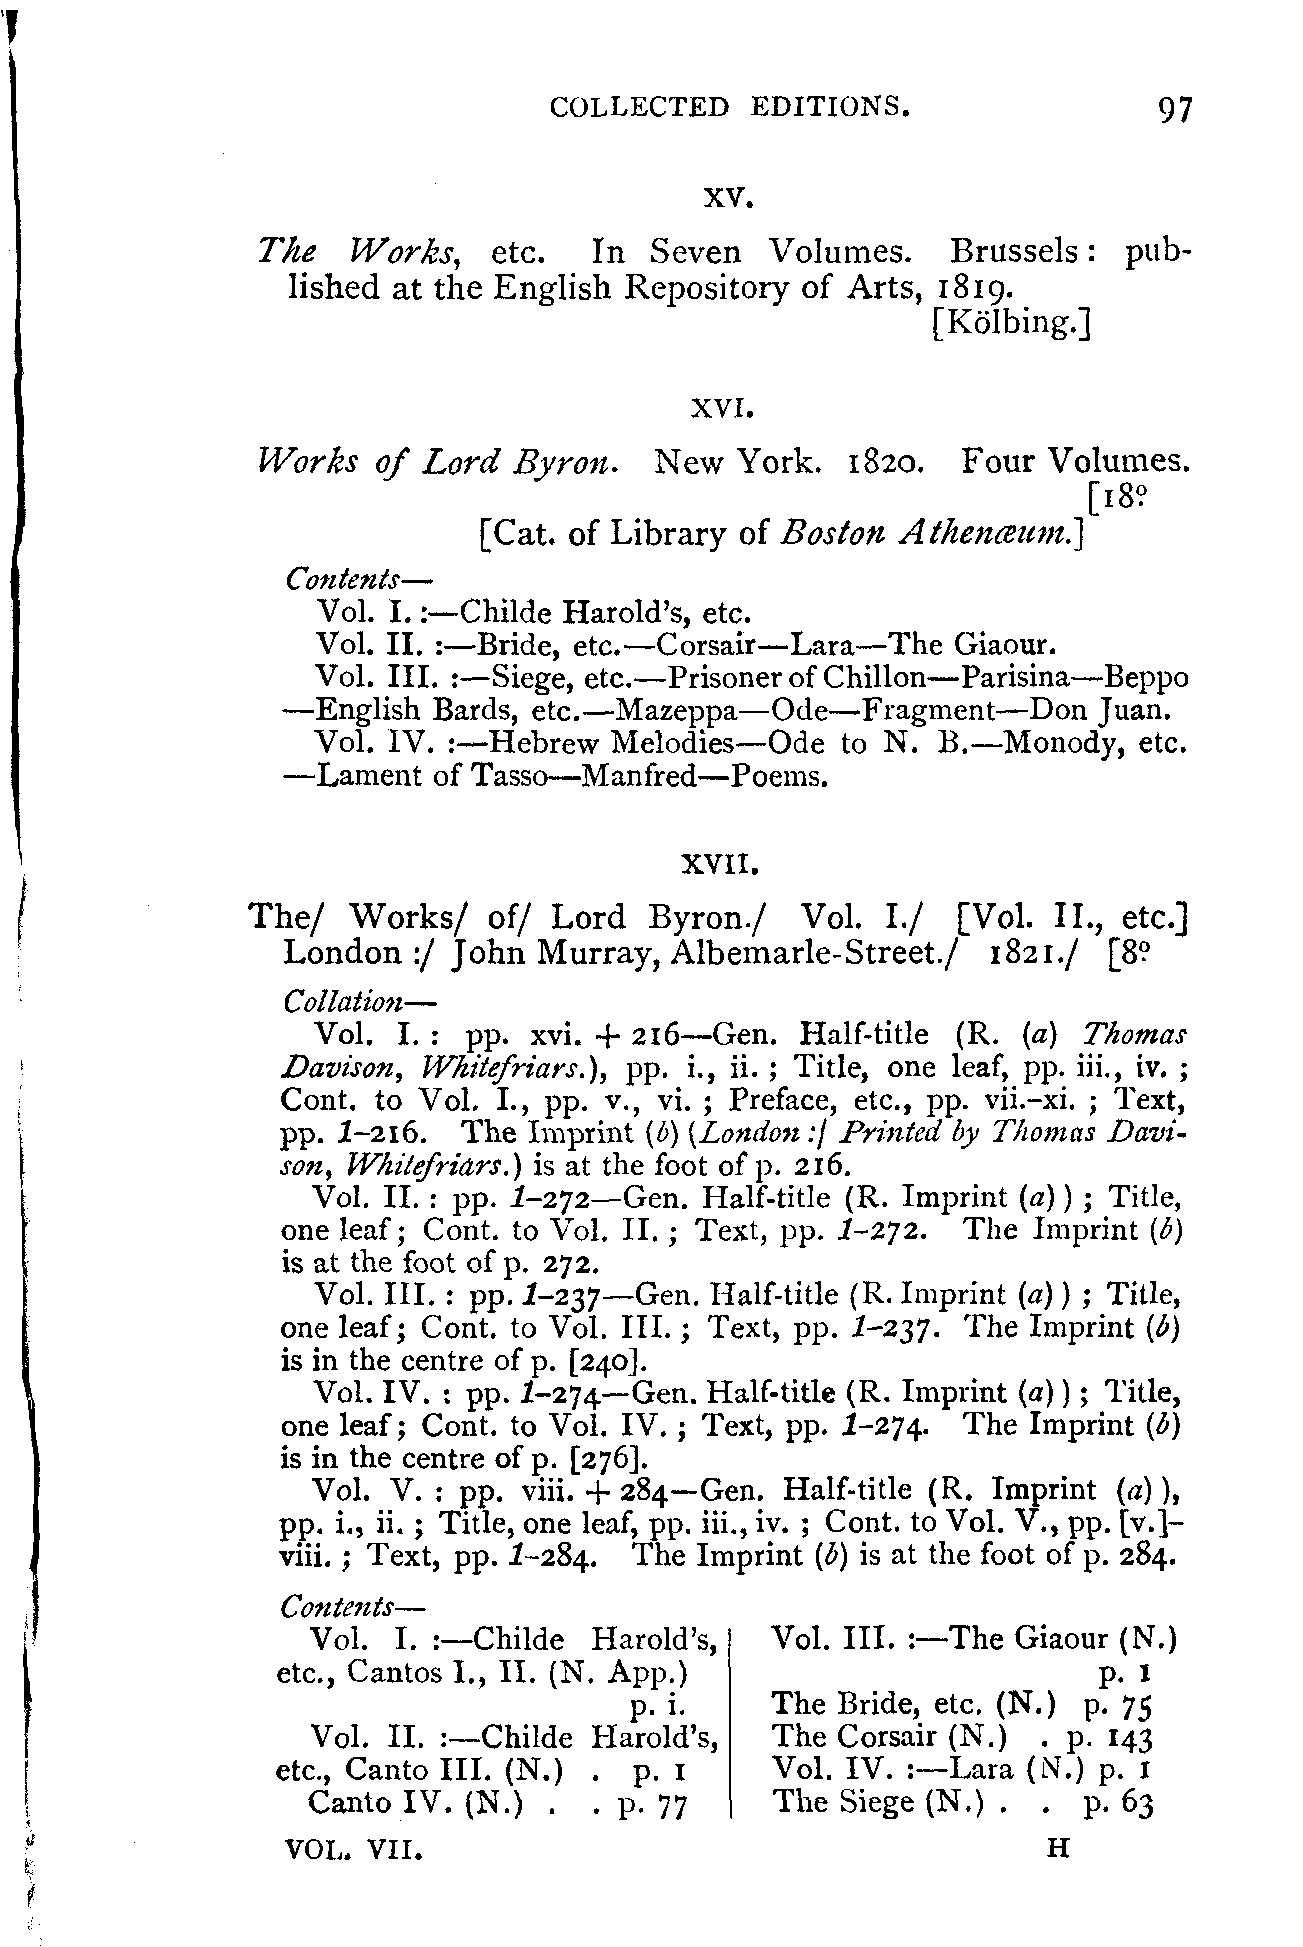 COLLECTED EDITIONS. 97
XV.
The Works, etc. In Seven Volumes. Brussels: pub-
lished at the English Repository of Arts, 1819.
[Kölbing.]
XVI.
Works of Lord Byron. New York. 1820. Four Volumes.
[18º
[Cat. of Library of Boston Athenæum.]
Contents—
Vol. I. :—Childe Harold's, etc.
Vol. II. :—Bride, etc.—Corsair—Lara—The Giaour.
Vol. III. :—Siege, etc.—Prisoner of Chillon—Parisina—Beppo
—English Bards, etc.—Mazeppa—Ode—Fragment—Don Juan.
Vol. IV. :—Hebrew Melodies—Ode to N. B.—Monody, etc.
—Lament of Tasso—Manfred—Poems.
XVII.
The/ Works/ of/ Lord Byron./ Vol. I./ [Vol. II., etc.]
London :/ John Murray, Albemarle-Street./ 1821./ [8º
Collation—
Vol. I. : pp. xvi. + 216—Gen. Half-title (R. (a) Thomas
Davison, Whitefriars.), pp. i., ii. ; Title, one leaf, pp. iii., iv. ;
Cont. to Vol. I., pp. v., vi. ; Preface, etc., pp. vii.-xi. ; Text,
pp. 1-216. The Imprint (b) (London :/ Printed by Thomas Davi-
son, Whitefriars.) is at the foot of p. 216.
Vol. II. : pp. 1-272—Gen. Half-title (R. Imprint (a) ) ; Title,
one leaf ; Cont. to Vol. II. ; Text, pp. 1-272. The Imprint (b)
is at the foot of p. 272.
Vol. III. : pp. 1-237—Gen. Half-title (R. Imprint (a) ) ; Title,
one leaf ; Cont. to Vol. III. ; Text, pp. 1-237. The Imprint (b)
is in the centre of p. [240].
Vol. IV. : pp. 1-274—Gen. Half-title (R. Imprint (a) ) ; Title,
one leaf ; Cont. to Vol. IV. ; Text, pp. 1-274. The Imprint (b)
is in the centre of p. [276].
Vol. V. : pp. viii. + 284—Gen. Half-title (R. Imprint (a) ),
pp. i., ii. ; Title, one leaf, pp. iii., iv. ; Cont. to Vol. V., pp. [v.]-
viii. ; Text, pp. 1-284. The Imprint (b) is at the foot of p. 284.
Contents—
Vol. I. :—Childe Harold's,
etc., Cantos I., II. (N. App.)
p. i.
Vol. II. :—Childe Harold's,
etc., Canto III. (N.) . p. 1
Canto IV. (N.) . . p. 77
Vol. III. :—The Giaour (N.)
p. 1
The Bride, etc. (N.) p. 75
The Corsair (N.) . p. 143
Vol. IV. :—Lara (N.) p. 1
The Siege (N.) . . p. 63
VOL. VII. H